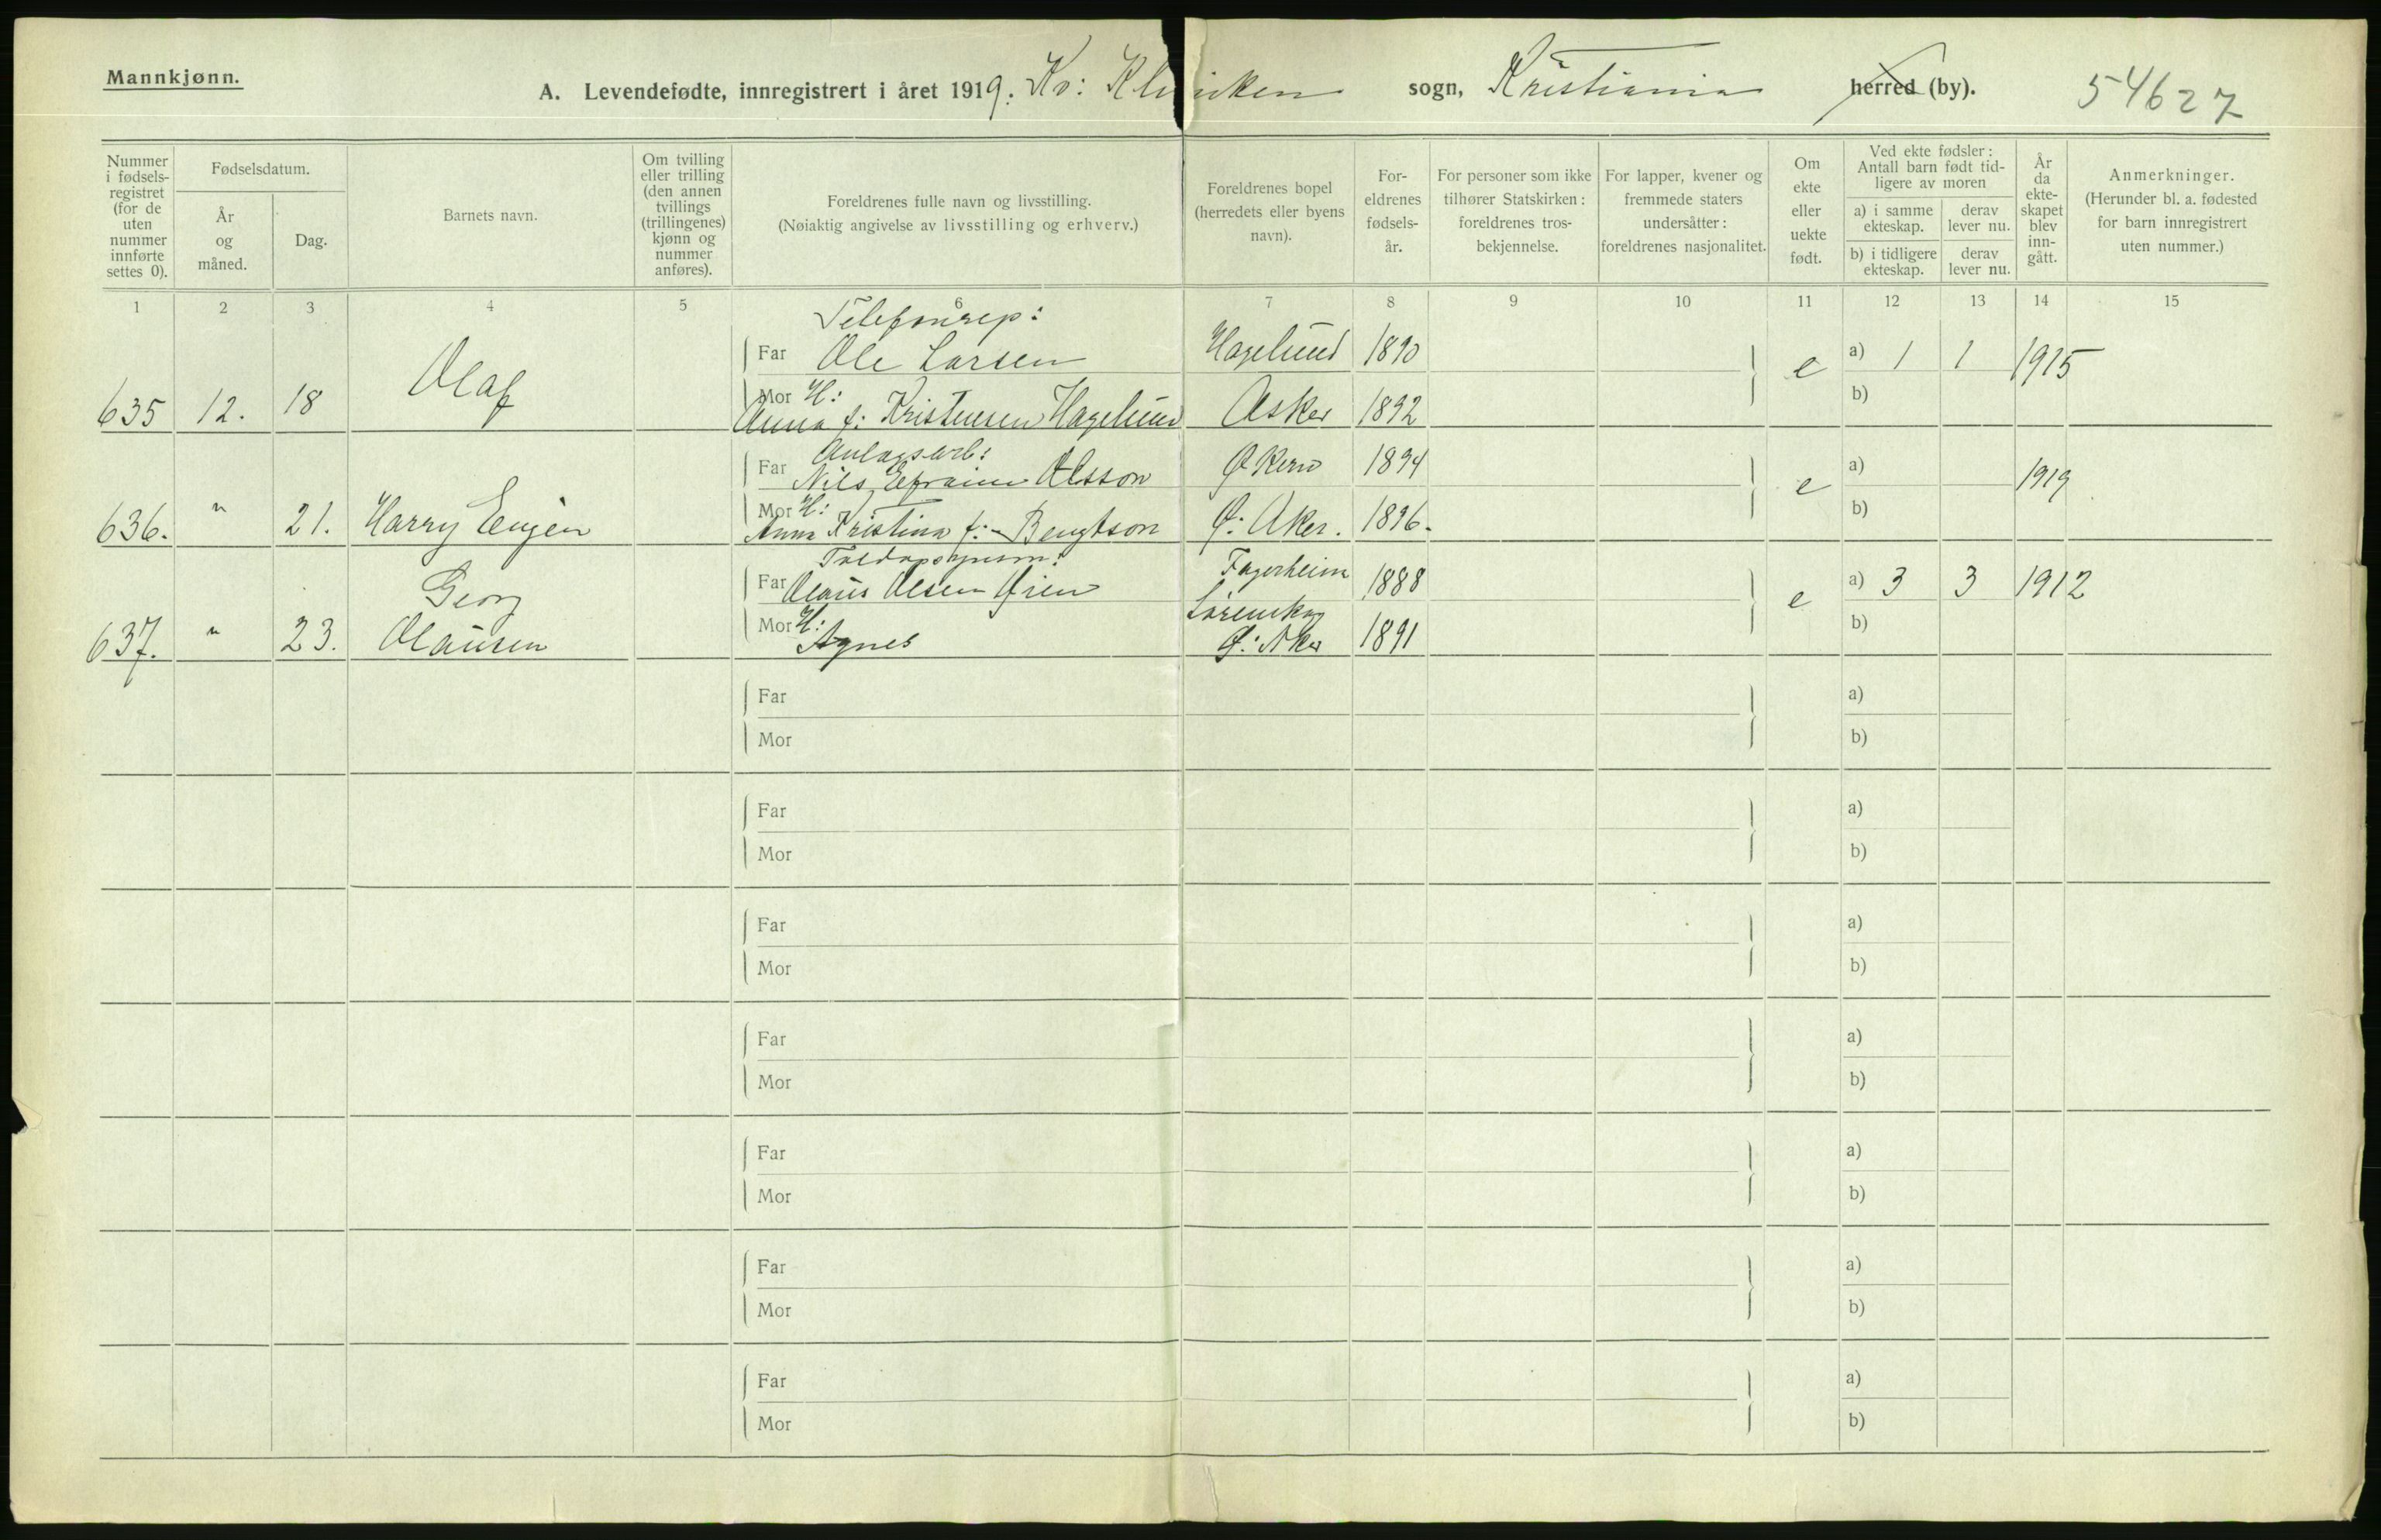 Mannkjønn.
A. Levendefødte, innregistrert i året 1919. Kv: Klinikken sogn, Kristiania herred (by). 54627
Nummer i fødsels-registret (for de uten nummer innførte settes 0).
Fødselsdatum.
År og måned.
Dag.
Barnets navn.
Om tvilling eller trilling (den annen tvillings (trillingenes) kjønn og nummer anføres).
Foreldrenes fulle navn og livsstilling.
(Nøiaktig angivelse av livsstilling og erhverv.)
Foreldrenes bopel (herredets eller byens navn).
For-eldrenes fødsels-år.
For personer som ikke tilhører Statskirken: foreldrenes tros-bekjennelse.
For lapper, kvener og fremmede staters undersåtter: foreldrenes nasjonalitet.
Om ekte eller uekte født.
Ved ekte fødsler: Antall barn født tid-ligere av moren
a) i samme ekteskap.
derav lever nu.
b) i tidligere ekteskap.
derav lever nu.
År da ekte-skapet blev inn-gått.
Anmerkninger.
(Herunder bl. a. fødested for barn innregistrert uten nummer.)
1 2 3 4 5 6 7 8 9 10 11 12 13 14 15
Telefonrep:
Far Ole Larsen Hagelund 1890
635 12. 18 Olaf e a) 1 1 1915
Mor H: b)
Anna f: Kristensen Hagelund Asker 1892
Anlagsarb:
Far Nils Efraim Olsson Økern 1894
636. " 21. Harry Eugen e a) 1919
Mor H: b)
Anna Kristina f: Bengtson Ø: Aker. 1896.
Far Olaus Olsen Øien Fagerheim 1888
Georg e a) 3 3 1912
Lørenskog
637. " 23. Olausen
Mor H: b)
Agnes Ø: Aker 1891
Far a)
Mor b)
Far a)
Mor b)
Far a)
Mor b)
Far a)
Mor b)
Far a)
Mor b)
Far a)
Mor b)
Far a)
Mor b)